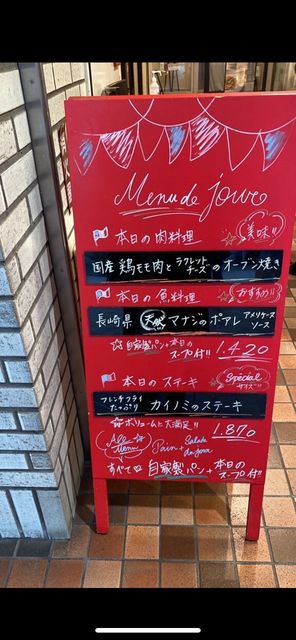 Menu de jour
本日の肉料理
美味!!
国産鶏モモ肉とラクレットチーズのオーブン焼き
本日の魚料理
おすすめ!!
長崎県 天然 マナジのポアレ アメリケーヌソース
☆自家製パン+本日のスープ付!! 1.420
本日のステーキ
Special サイズ〜!!
フレンチフライたっぷり カイノミのステーキ
☆ボリュームに大満足!! 1.870
All Menu
Pain + Salade du jour
すべて 自家製パン+本日のスープ付!!